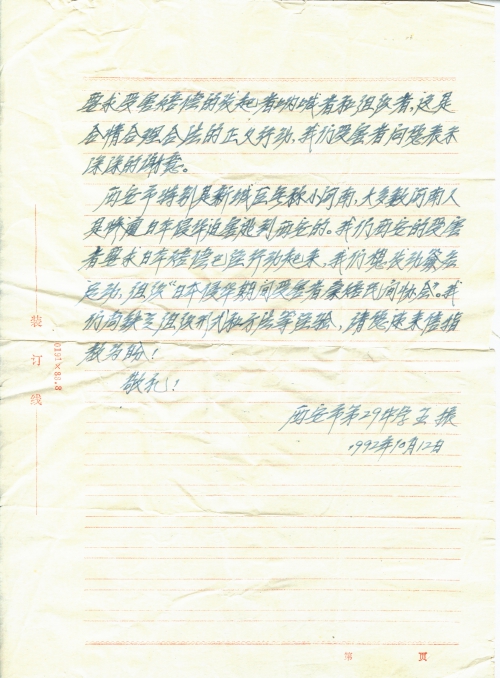 要求受害赔偿的发起者呐喊者和组织者,这是
合情合理合法的正义行动,我们受害者向您表示
深深的谢意。
西安市特别是新城区号称小河南,大多数河南人
是惨遭日军侵华迫害逃到西安的。我们西安的受害
者要求日本赔偿已经行动起来,我们想发动签名
运动,组织“日本侵华期间受害者索赔民间协会”。我
们尚缺乏组织形式和方法等经验,请您速来信指
教为盼!
敬礼!
西安市第29中学 王振
1992年10月12日
装订线
16191×88.8
第 页